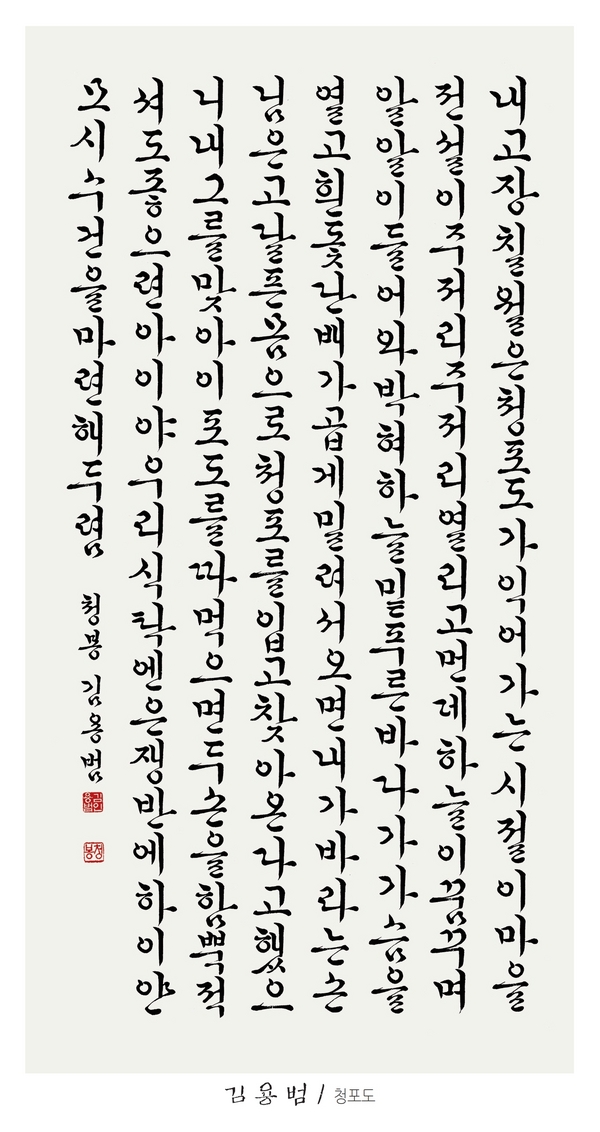 내고장칠월은청포도가익어가는시절이마을
전설이주저리주저리열리고먼데하늘이꿈꾸며
알알이들어와박혀하늘밑푸른바다가가슴을
열고흰돛단배가곱게밀려서오면내가바라는손
님은고달픈몸으로청포를입고찾아온다고했으
니내그를맞아이포도를따먹으면두손을함뿍적
셔도좋으련아이야우리식탁엔은쟁반에하이얀
모시수건을마련해두렴 청봉 김용범
청봉
김용범 / 청포도